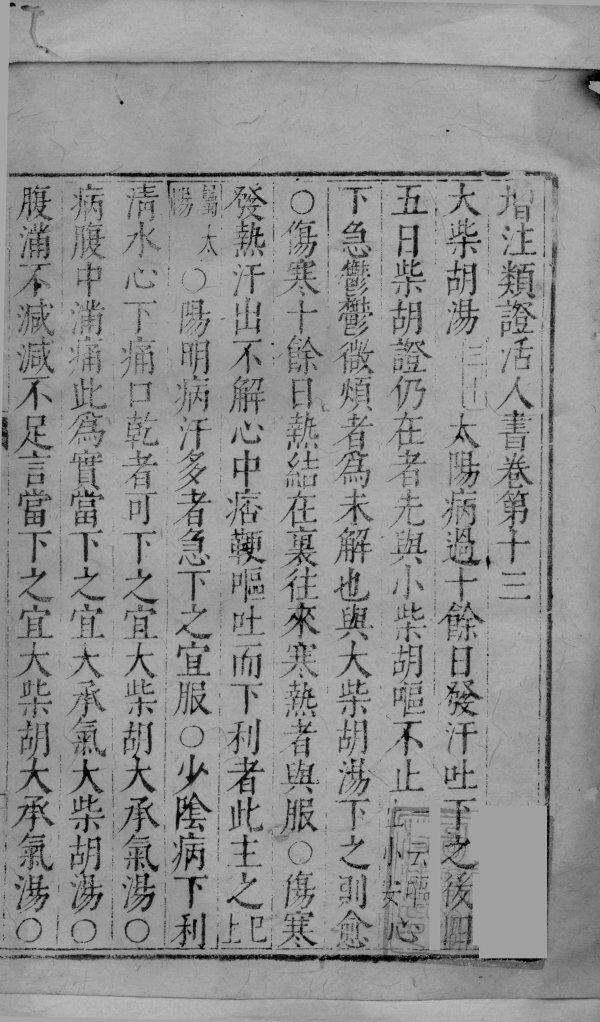 增注類證活人書卷第十三
大柴胡湯 太陽病過十餘日發汗吐下之後四
五日柴胡證仍在者先與小柴胡嘔不止 云嘔 小安心
下急鬱鬱微煩者為未解也與大柴胡湯下之則愈
○傷寒十餘日熱結在裏往來寒熱者與服○傷寒
發熱汗出不解心中痞鞕嘔吐而下利者此主之 已上
屬太陽○陽明病汗多者急下之宜服○少陰病下利
清水心下痛口乾者可下之宜大柴胡大承氣湯○
病腹中滿痛此為實當下之宜大承氣大柴胡湯○
腹滿不減減不足言當下之宜大柴胡大承氣湯○